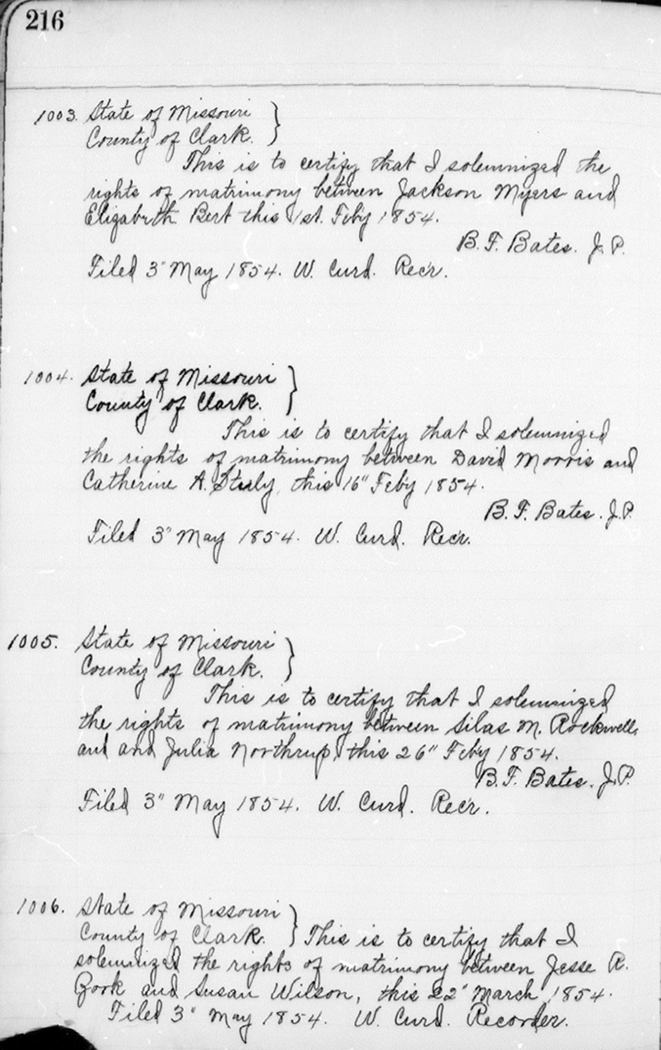 216
1003. State of Missouri }
County of Clark. }
This is to certify that I solemnized the
rights of matrimony between Jackson Myers and
Elizabeth Bert this 1st. Feby 1854.
B. F. Bates. J. P.
Filed 3" May 1854. W. Curd. Recr.
1004. State of Missouri }
County of Clark. }
This is to certify that I solemnized
the rights of matrimony between David Morris and
Catherine A. this 16" Feby 1854.
B. F. Bates. J. P.
Filed 3" May 1854. W. Curd. Recr.
1005. State of Missouri }
County of Clark. }
This is to certify that I solemnized
the rights of matrimony between Silas M. Rockwell
and and Julia Northrup, this 26" Feby 1854.
B. F. Bates. J. P.
Filed 3" May 1854. W. Curd. Recr.
1006. State of Missouri }
County of Clark. } This is to certify that I
solemnized the rights of matrimony between Jesse R.
and Susan Wilson, this 22" March, 1854.
Filed 3" May 1854. W. Curd. Recorder.